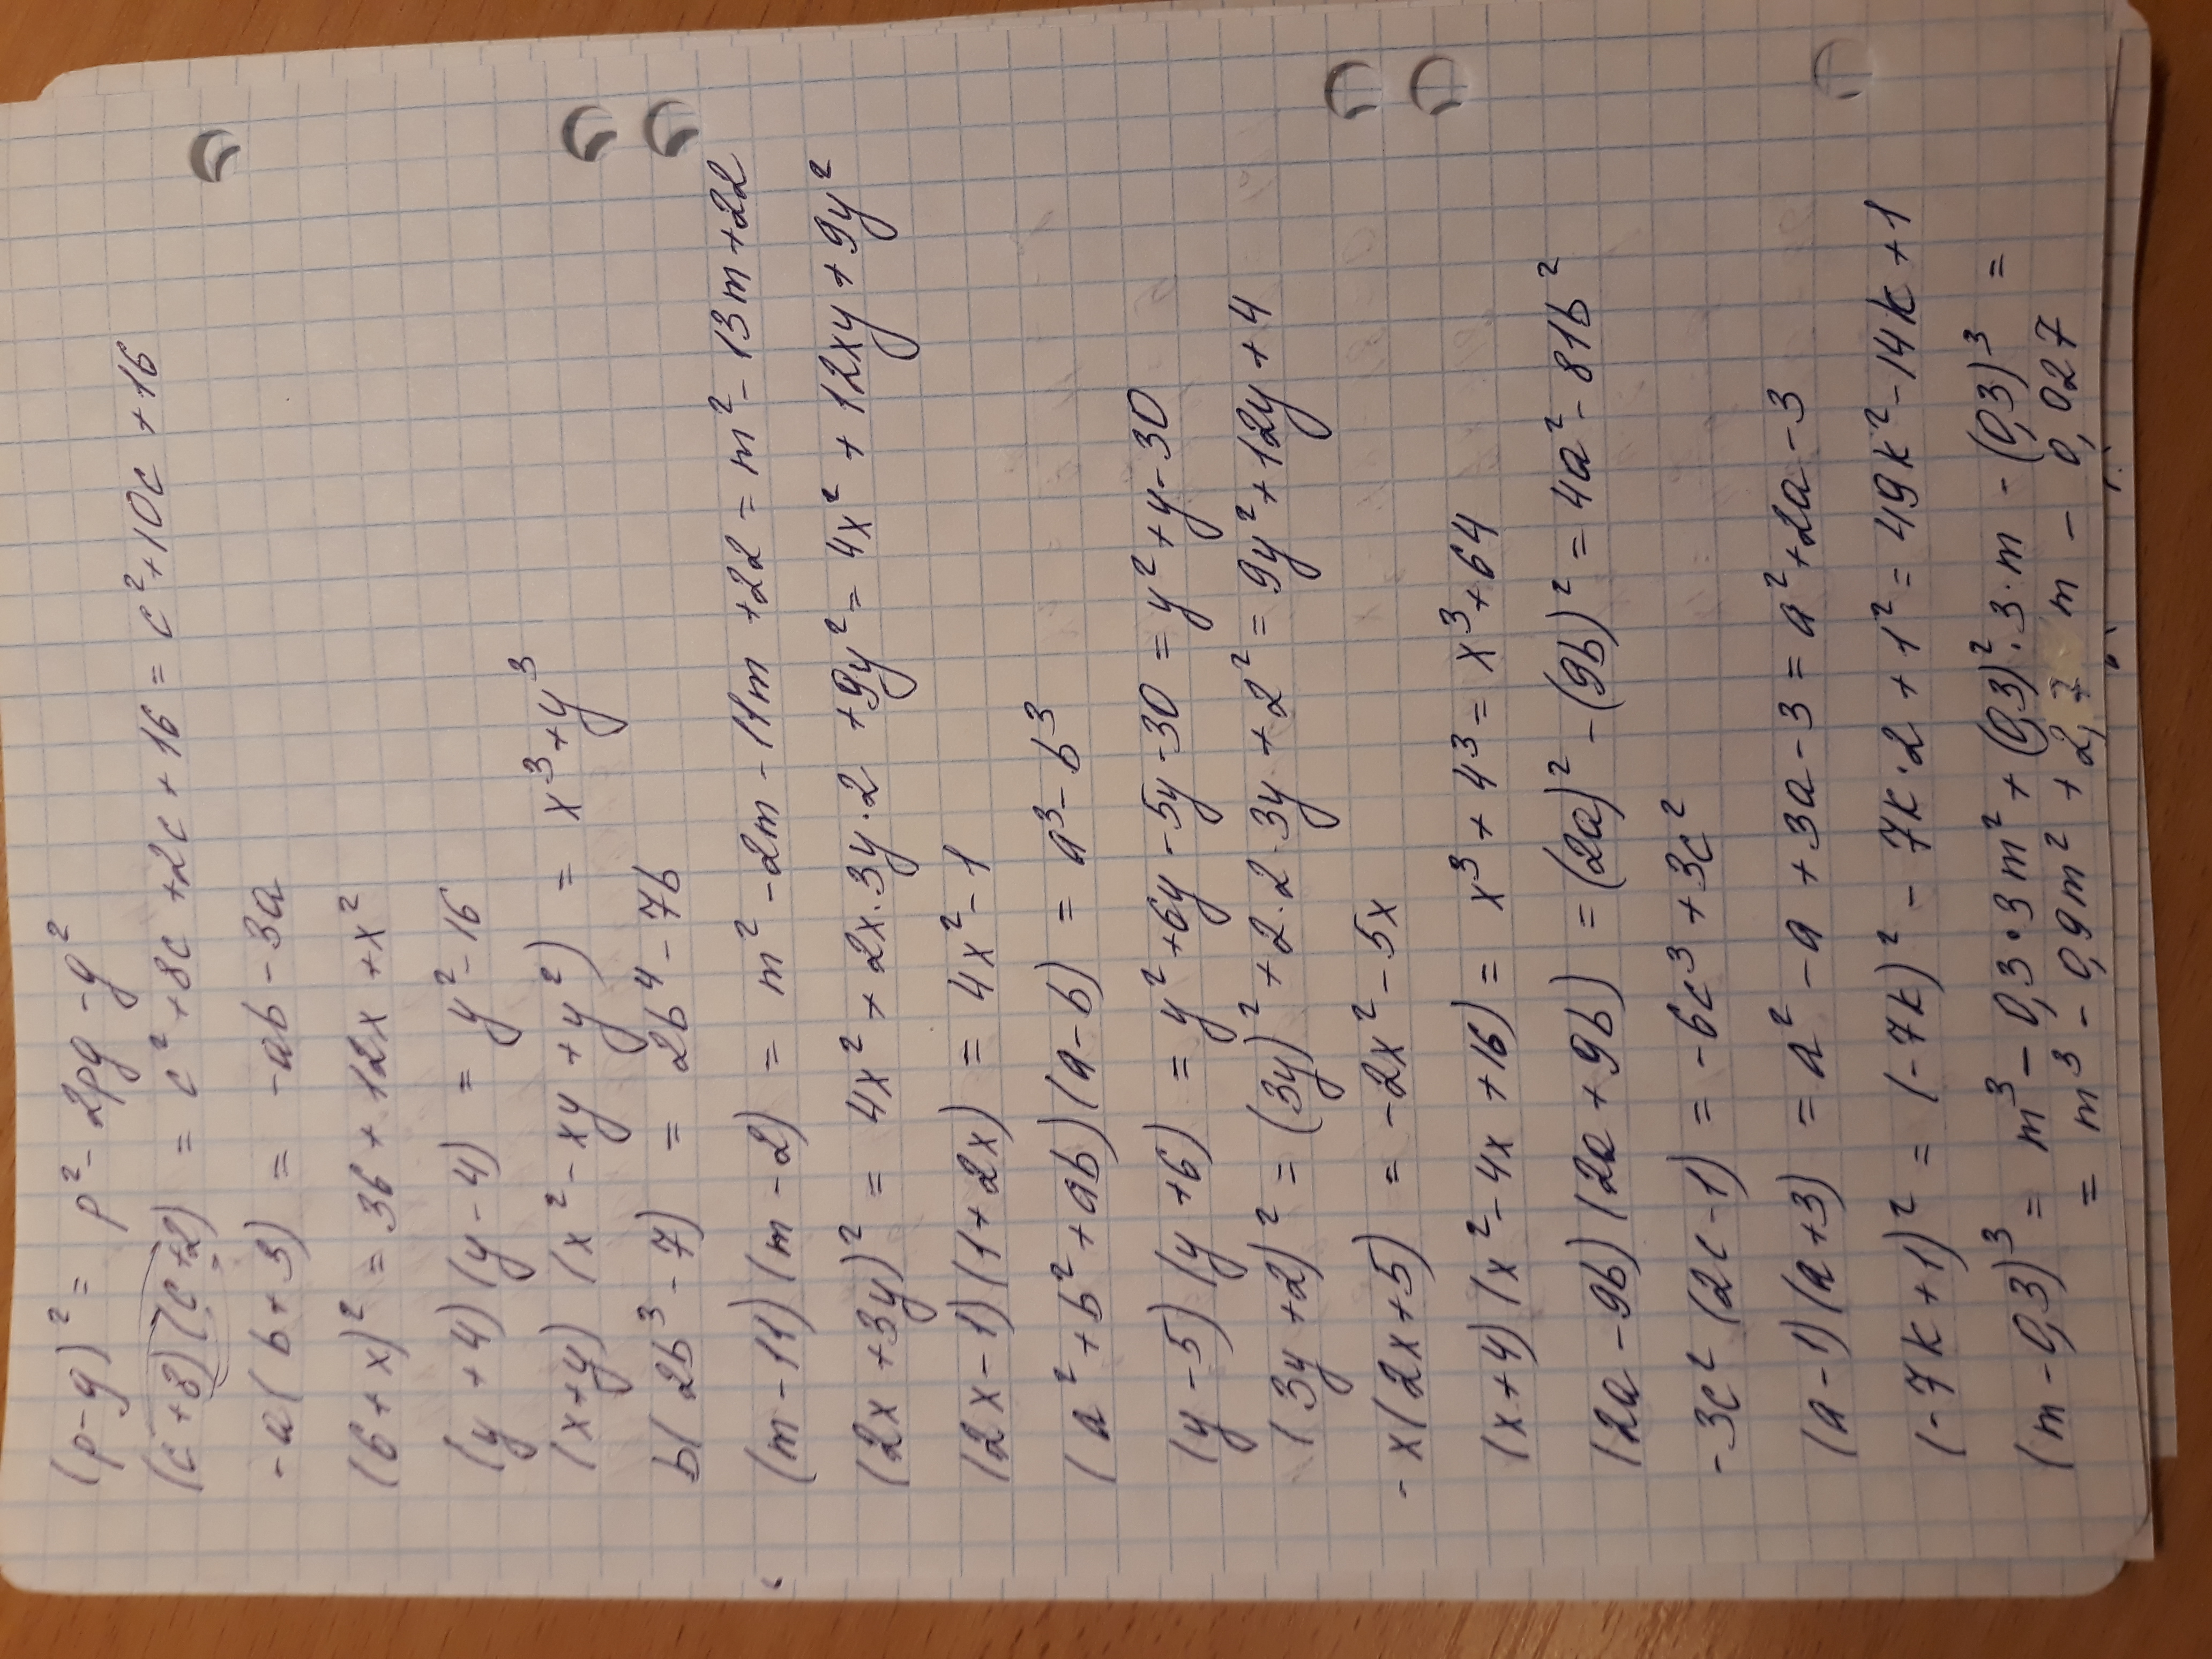 (p-g)² = p² - 2pg - g²
(c+8)(c+2) = c² + 8c + 2c + 16 = c² + 10c + 16
-a(b+3) = -ab - 3a
(6+x)² = 36 + 12x + x²
(y+4)(y-4) = y² - 16
(x+y)(x² - xy + y²) = x³ + y³
b(2b³ - 7) = 2b⁴ - 7b
(m-11)(m-2) = m² - 2m - 11m + 22 = m² - 13m + 22
(2x+3y)² = 4x² + 2x·3y·2 + 9y² = 4x² + 12xy + 9y²
(2x-1)(1+2x) = 4x² - 1
(a² + b² + ab)(a-b) = a³ - b³
(y-5)(y+6) = y² + 6y - 5y - 30 = y² + y - 30
(3y+2)² = (3y)² + 2·2·3y + 2² = 9y² + 12y + 4
-x(2x+5) = -2x² - 5x
(x+4)(x² - 4x + 16) = x³ + 4³ = x³ + 64
(2a-9b)(2a+9b) = (2a)² - (9b)² = 4a² - 81b²
-3c²(2c-1) = -6c³ + 3c²
(a-1)(a+3) = a² - a + 3a - 3 = a² + 2a - 3
(-7k+1)² = (-7k)² - 7k·2 + 1² = 49k² - 14k + 1
(m-0,3)³ = m³ - 0,3·3m² + (0,3)²·3·m - (0,3)³ =
= m³ - 0,9m² + 2,7 m - 0,027